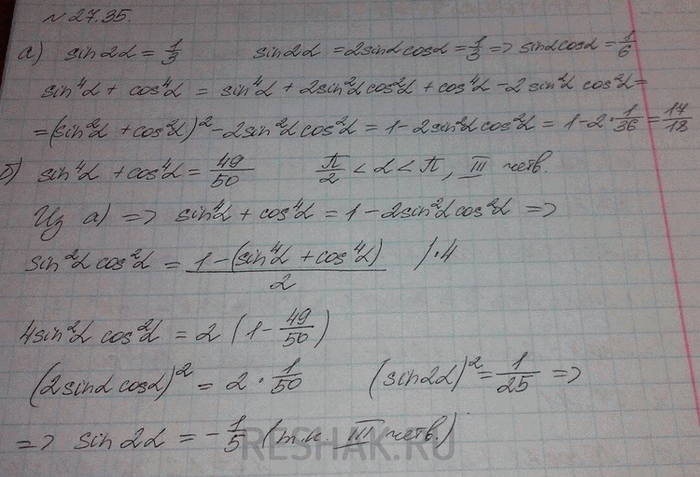 № 27.35.
а) sin2α = 1/3 sin2α = 2sinα cosα = 1/3 => sinα cosα = 1/6
sin⁴α + cos⁴α = sin⁴α + 2sin²α cos²α + cos⁴α - 2sin²α cos²α =
= (sin²α + cos²α)² - 2sin²α cos²α = 1 - 2sin²α cos²α = 1 - 2 · 1/36 = 17/18
б) sin⁴α + cos⁴α = 49/50 π/2 < α < π, III четв.
Из а) => sin⁴α + cos⁴α = 1 - 2sin²α cos²α =>
sin²α cos²α = (1 - (sin⁴α + cos⁴α))/2 / · 4
4sin²α cos²α = 2 (1 - 49/50)
(2sinα cosα)² = 2 · 1/50 (sin2α)² = 1/25 =>
=> sin2α = - 1/5 (т.к. III четв.)
RESHAK.RU